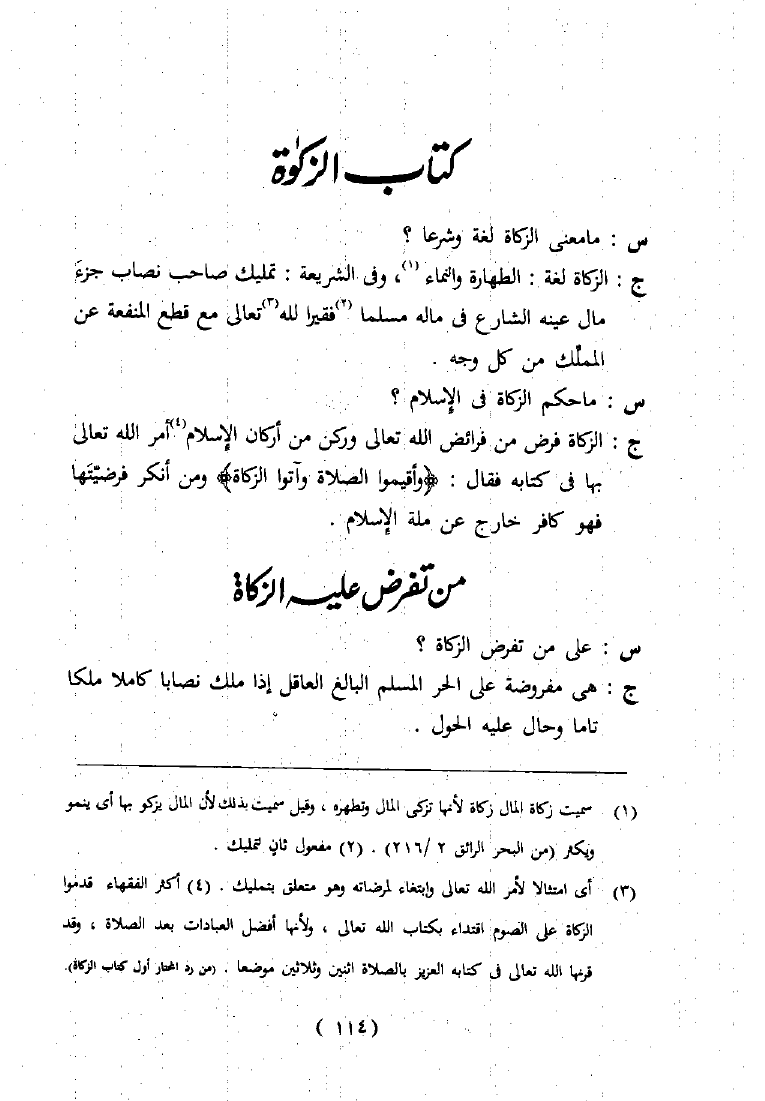 كتاب الزكوٰة
س : مامعنى الزكاة لغة وشرعا ؟
ج : الزكاة لغة : الطهارة والنماء (١)، وفى الشريعة : تمليك صاحب نصاب جزءَ
مال عينه الشارع فى ماله مسلما (٢) فقيرا لله (٣) تعالى مع قطع المنفعة عن
المملّك من كل وجه .
س : ماحكم الزكاة فى الإسلام ؟
ج : الزكاة فرض من فرائض الله تعالى وركن من أركان الإسلام (٤) أمر الله تعالى
بها فى كتابه فقال : ﴿وأقيموا الصلاة وآتوا الزكاة﴾ ومن أنكر فرضيّتَها
فهو كافر خارج عن ملة الإسلام .
من تفرض عليه الزكاة
س : على من تفرض الزكاة ؟
ج : هى مفروضة على الحر المسلم البالغ العاقل إذا ملك نصابا كاملا ملكا
تاما وحال عليه الحول .
(١) سميت زكاة المال زكاة لأنها تزكى المال وتطهره ، وقيل سميت بذلك لأن المال يزكو بها أى ينمو
ويكثر (من البحر الرائق ٢ /٢١٦) . (٢) مفعول ثانٍ لتمليك .
(٣) أى امتثالا لأمر الله تعالى وابتغاء لمرضاته وهو متعلق بتمليك . (٤) أكثر الفقهاء قدموا
الزكاة على الصوم اقتداء بكتاب الله تعالى ، ولأنها أفضل العبادات بعد الصلاة ، وقد
قرنها الله تعالى فى كتابه العزيز بالصلاة اثنين وثلاثين موضعا . (من رد المحتار أول كتاب الزكاة).
( ١١٤ )